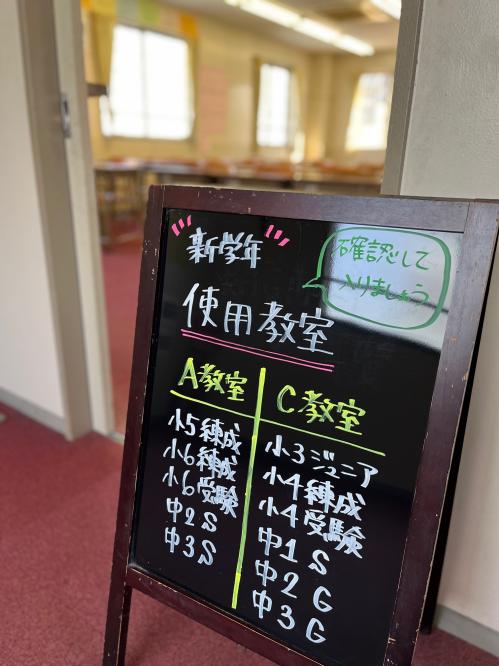 新学年
確認して
入りましょう
使用教室
A教室
小5練成
小6練成
小6受験
中2S
中3S
C教室
小3ジュニア
小4練成
小4受験
中1S
中2G
中3G